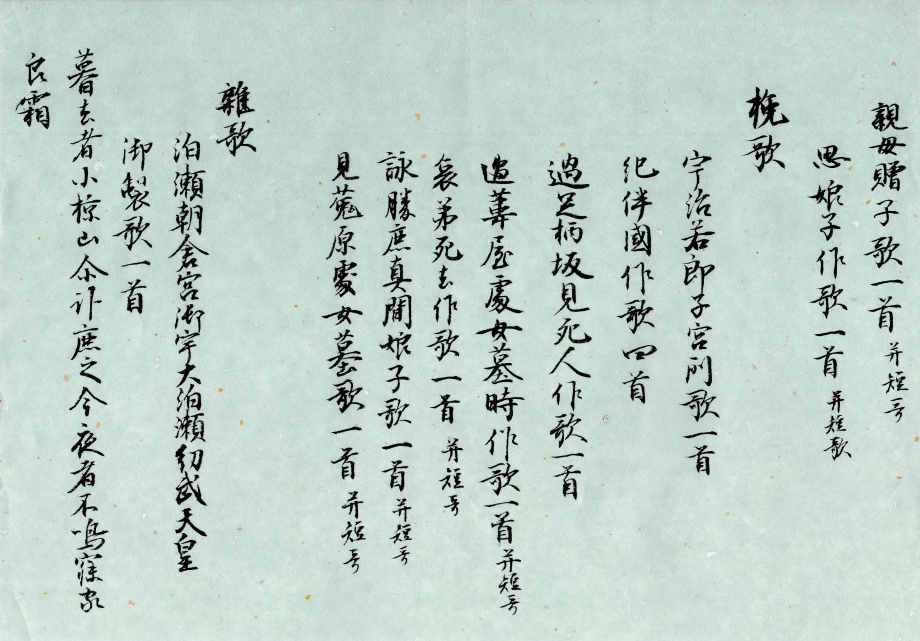 親母贈子歌一首 并短哥
思娘子作歌一首 并短歌
挽歌
宇治若郎子宮所歌一首
紀伴國作歌四首
過足柄坂見死人作歌一首
過葦屋處女墓時作歌一首 并短哥
哀弟死去作歌一首 并短哥
詠勝鹿真間娘子歌一首 并短哥
見菟原處女墓歌一首 并短哥
雜歌
泊瀬朝倉宮御宇大泊瀬幼武天皇
御製歌一首
暮去者小椋山尒臥鹿之今夜者不鳴寐家
良霜